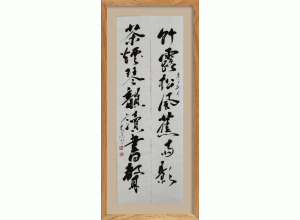 竹露松風蕉雨影
茶煙琴韻讀書聲